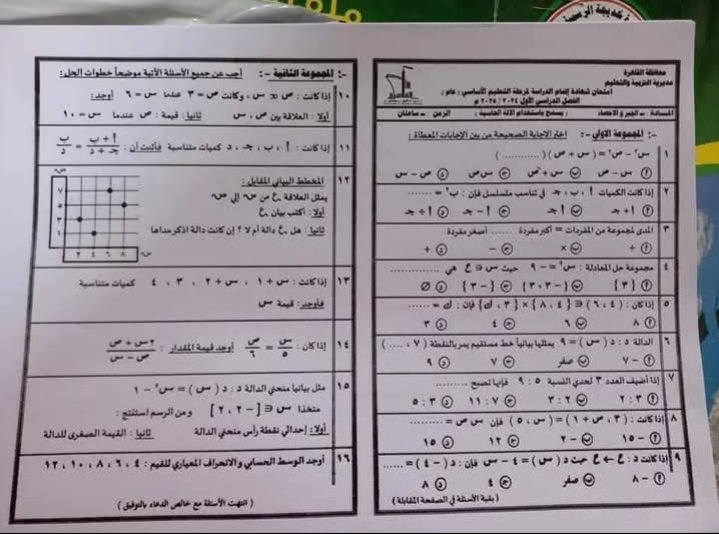 محافظة القاهرة
مديرية التربية والتعليم
امتحان شهادة إتمام الدراسة لمرحلة التعليم الأساسي ( عام )
الفصل الدراسي الأول ٢٠٢٤ / ٢٠٢٥ م
المـــادة : ـ الجبر و الاحصاء ( يسمح باستخدام الآلة الحاسبة ) الزمن : ـ ساعتان
-: المجموعة الأولي :- اختر الإجابة الصحيحة من بين الإجابات المعطاة :
١ س٢ – ص٢ = ( س + ص ) ( ............ )
أ س – ص ب س + ص ج س ص د ص – س
٢ إذا كانت الكميات أ ، ب ، جـ في تناسب متسلسل فإن : ب٢ = .......
أ أ + جـ ب أ جـ ج أ - جـ د أ ÷ جـ
٣ المدى لمجموعة من المفردات = أكبر مفردة ..... أصغر مفردة
أ ÷ ب × ج – د +
٤ مجموعة حل المعادلة : س٢ = – ٩ حيث س ∈ ح هي ............
أ { ٣ } ب { ٣ ، - ٣ } ج { - ٣ } د ∅
٥ إذا كان : ( ٤ ، ٦ ) ∈ { ٤ ، ٨ } × { ٣ ، ك } فإن : ك = ......
أ ٨ ب ٦ ج ٤ د ٣
٦ الدالة د : د ( س ) = ٩ يمثلها بيانياً خط مستقيم يمر بالنقطة ( ٧ ، .... )
أ – ٧ ب صفر ج ٧ د ٩
٧ إذا أضيف العدد ٣ لحدي النسبة ٥ : ٩ فإنها تصبح ..........
أ ٢ : ٣ ب ٣ : ٢ ج ١١ : ٧ د ٥ : ٣
٨ إذا كانت : ( ٣ ، ص + ١ ) = ( س ، ٥ ) فإن س ص = ........
أ – ١٥ ب – ٢ ج ١٢ د ١٥
٩ إذا كانت د : ح ← ح حيث د ( س ) = ٤ – س فإن : د ( – ٤ ) = ......
أ – ٨ ب صفر ج ٤ د ٨
( بقية الأسئلة في الصفحة المقابلة )
-: المجموعة الثانية :- أجب عن جميع الأسئلة الآتية موضحاً خطوات الحل :
١٠ إذا كانت : ص ∝ س ، وكانت ص = ٣ عندما س = ٦ أوجد :
أولا : العلاقة بين ص ، س ثانيا : قيمة : ص عندما س = ١٠
١١ إذا كانت : أ ، ب ، جـ ، د كميات متناسبة فأثبت أن : أ + ب / جـ + د = ب / د
١٢ المخطط البياني المقابل :
يمثل العلاقة ع من س إلي ص
أولا : أكتب بيان ع
ثانيا : هل ع دالة أم لا ؟ إن كانت دالة اذكر مداها
ص
٧
٥
٣
١
٢ ٤ ٦ ٨ س
١٣ إذا كانت : س + ١ ، س + ٢ ، ٣ ، ٤ كميات متناسبة
فأوجد : قيمة س
١٤ إذا كان : س / ٥ = ص / ٦ أوجد قيمة المقدار : ٢ س + ص / ص – س
١٥ مثل بيانيا منحني الدالة د : د ( س ) = س٢ – ١
متخذا س ∈ [ – ٢ ، ٢ ] ومن الرسم استنتج :
أولا : إحداثي نقطة رأس منحني الدالة ثانيا : القيمة الصغرى للدالة
١٦ أوجد الوسط الحسابي والانحراف المعياري للقيم : ٤ ، ٦ ، ٨ ، ١٠ ، ١٢
( انتهت الأسئلة مع خالص الدعاء بالتوفيق )